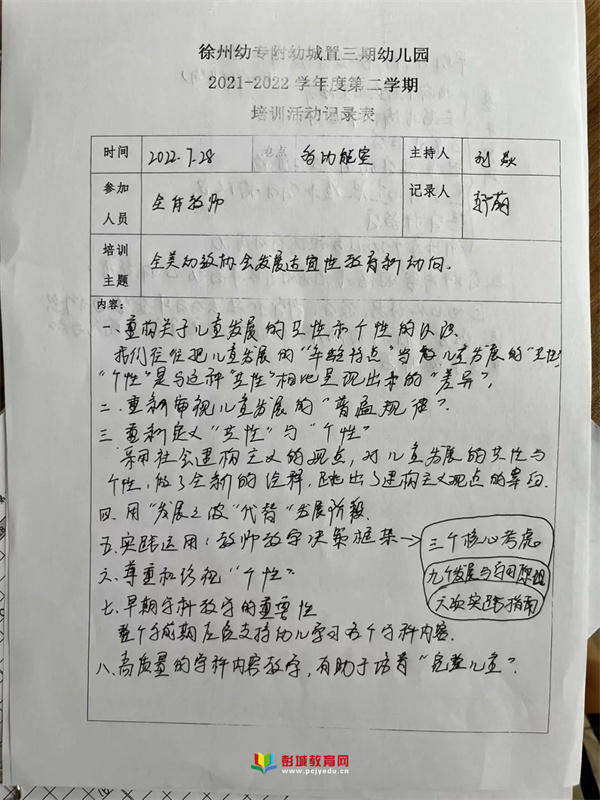 徐州幼专附幼城置三期幼儿园
2021-2022 学年度第二学期
培训活动记录表
时间 2022.7.28 地点 多功能室 主持人 刘
参加人员 全体教师 记录人
培训主题 全美幼教协会发展适宜性教育新动向。
内容:
一、重构关于儿童发展的共性和个性的认识
我们往往把儿童发展的"年龄特点"当做儿童发展的"共性"
"个性"是与这种"共性"相比呈现出来的"差异",
二、重新审视儿童发展的"普遍规律".
三、重新定义"共性"与"个性"
采用社会建构主义的观点,对儿童发展的共性与
个性,做了全新的诠释,跳出了建构主义观点的窠臼.
四、用"发展之波"代替"发展阶段.
五、实践运用:教师教学决策框架→ 三个核心考虑
九个发展与学习原理
六、尊重和珍视"个性"
六项实践指南
七、早期学科教学的重要性
整个学前期应该支持幼儿学习各个学科内容.
八、高质量的学科内容教学,有助于培育"完整儿童".
彭城教育网
www.pcjyedu.cn